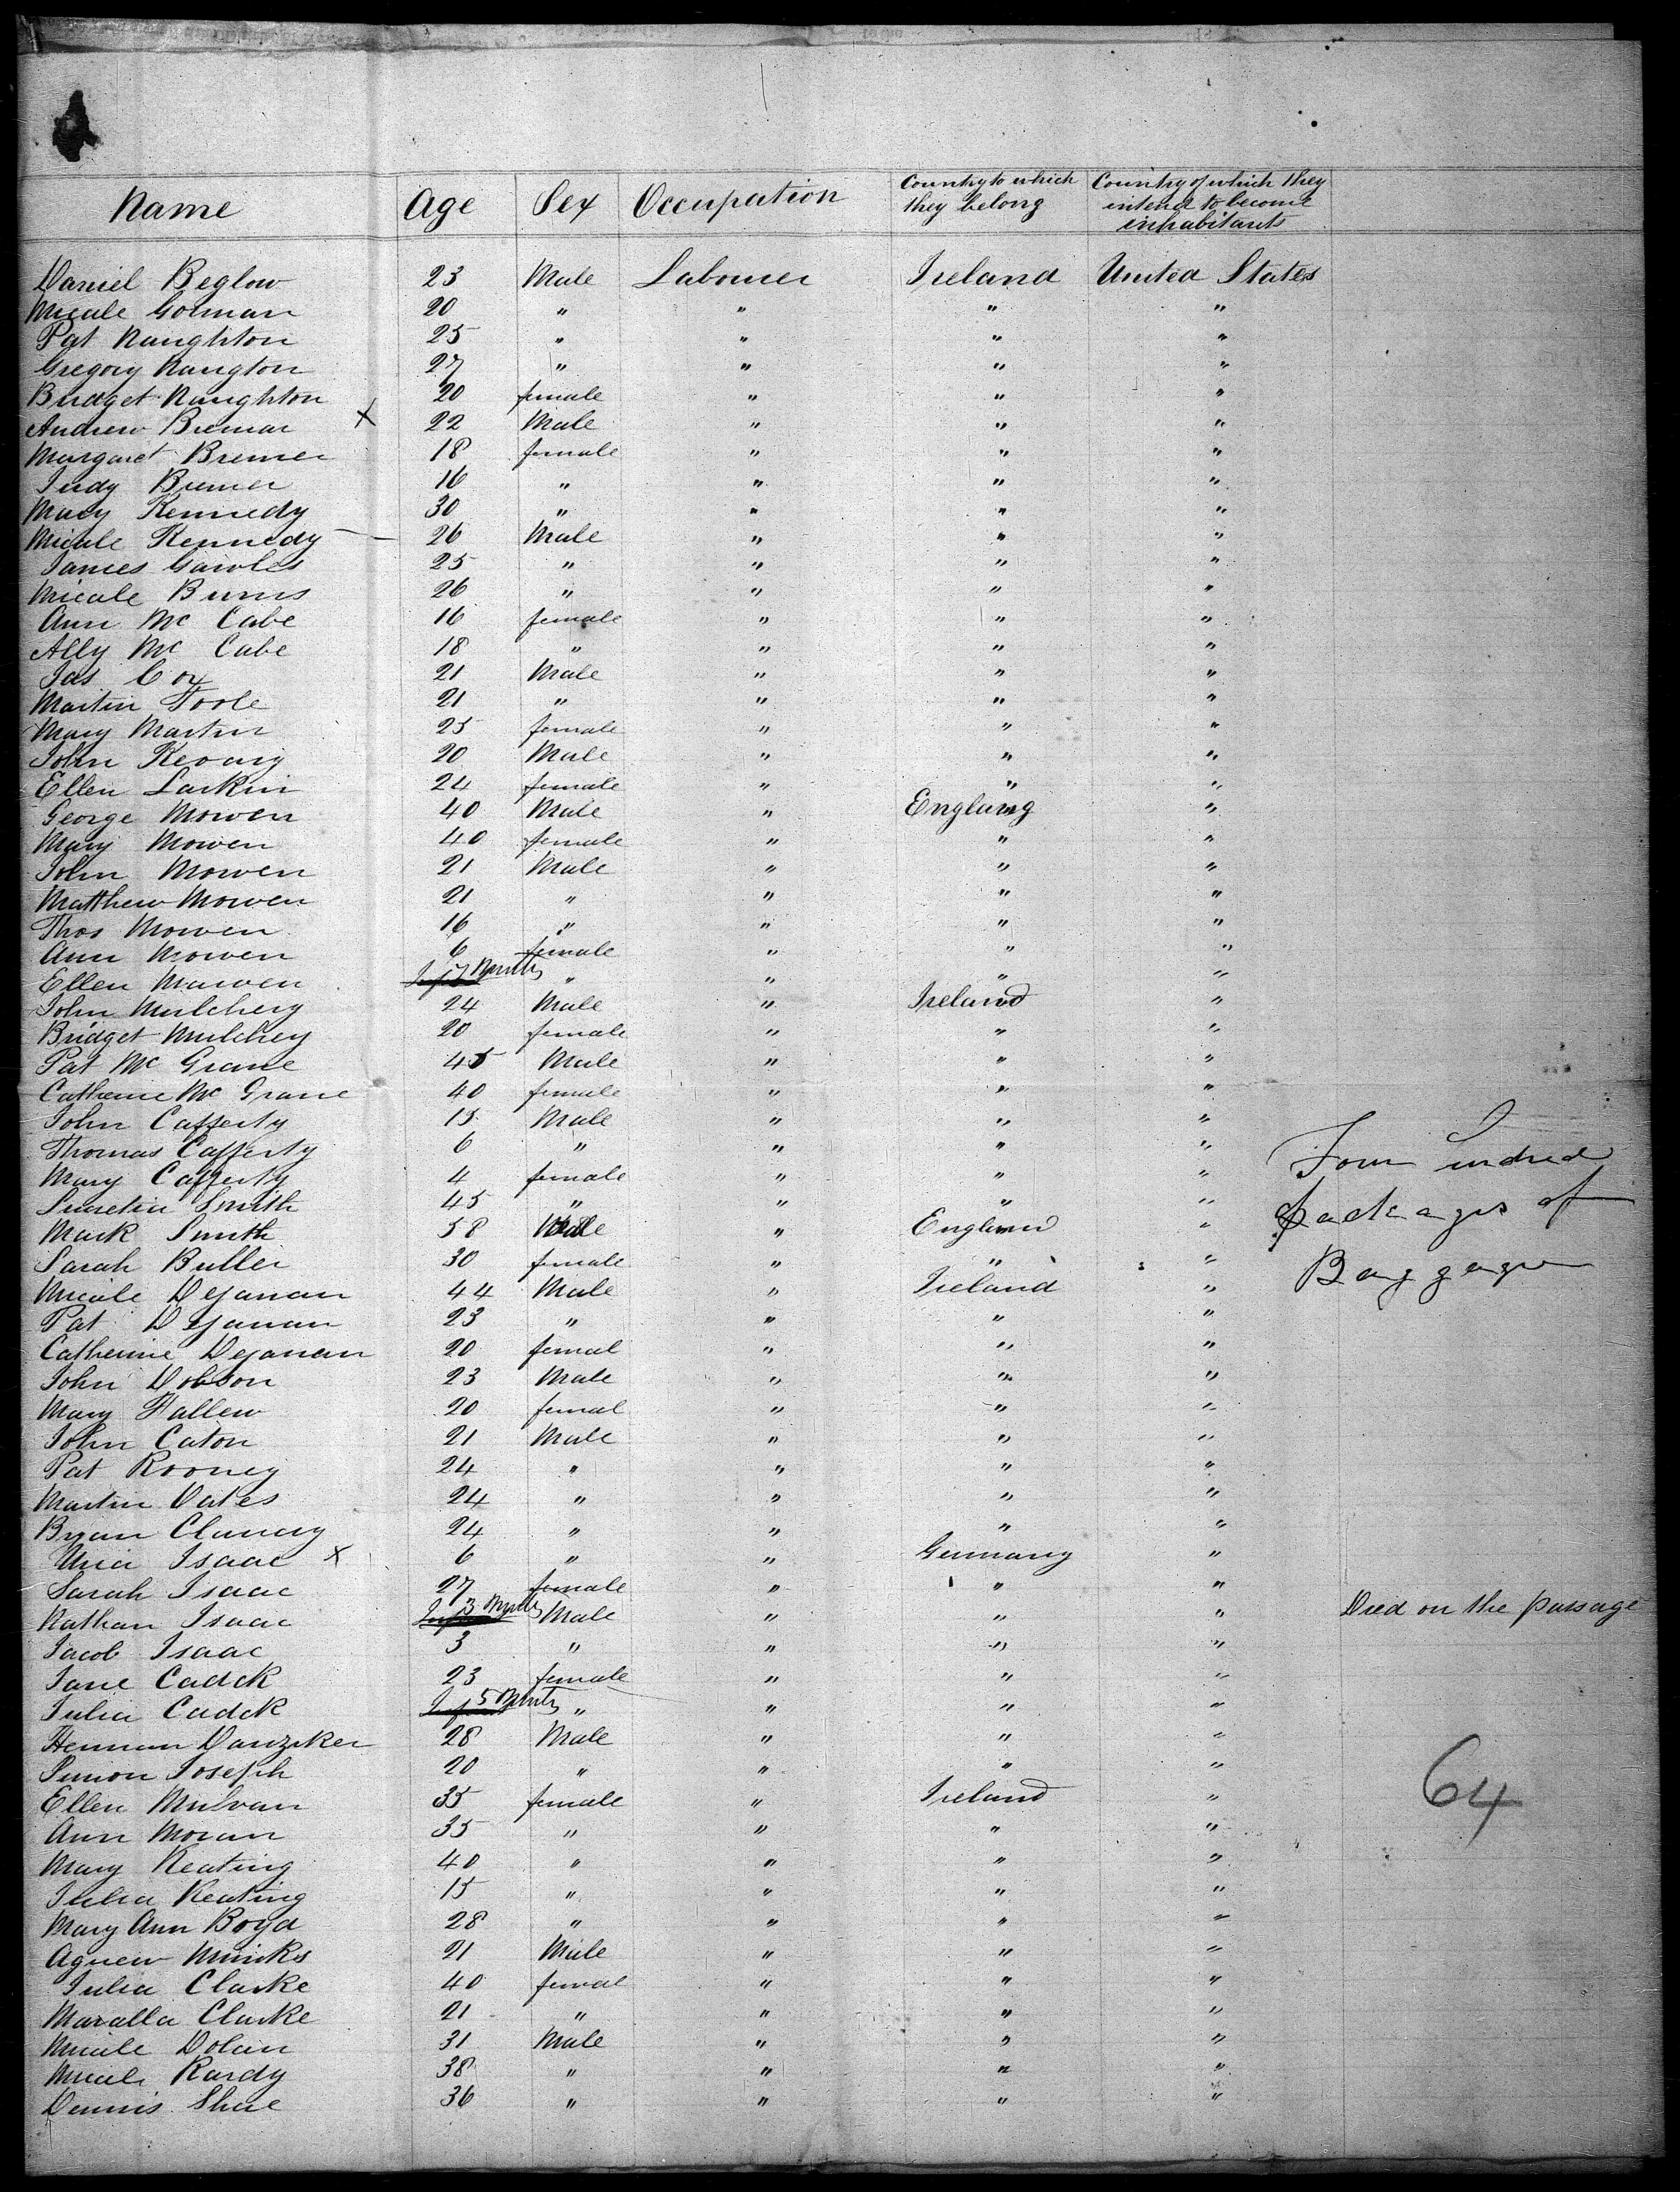 Name Age Sex Occupation Country to which they belong Country of which they intend to become inhabitants
Daniel Beglow 23 Male Labourer Ireland United States
Micale Gorman 20 " " " "
Pat Naughton 25 " " " "
Gregory Naugton 27 " " " "
Bridget Naughton 20 female " " "
Andrew Bremar X 22 Male " " "
Margaret Bremer 18 female " " "
Judy Bremer 16 " " " "
Mary Kennedy 30 " " " "
Micale Kennedy 26 Male " " "
James 25 " " " "
Micale Burns 26 " " " "
Ann Mc Cabe 16 female " " "
Ally Mc Cabe 18 " " " "
Jas Cox 21 Male " " "
Martin Toole 21 " " " "
Mary Martin 25 female " " "
John Keovig 20 Male " " "
Ellen Larkin 24 female " " "
George Mowen 40 Male " England "
Mary Mowen 40 female " " "
John Mowen 21 Male " " "
Matthew Mowen 21 " " " "
Thos Mowen 16 " " " "
Ann Mowen 6 female " " "
Ellen Mowen 7 Months " " " "
John Mulchey 24 Male " Ireland "
Bridget Mulchey 20 female " " "
Pat Mc Grane 45 Male " " "
Catherine Mc Grane 40 female " " "
John Cafferty 15 Male " " "
Thomas Cafferty 6 " " " "
Mary Cafferty 4 female " " "
Smith 45 " " " "
Mark Smith 58 Male " England "
Sarah Butler 30 female " " "
Micale Deganan 44 Male " Ireland "
Pat Deganan 23 " " " "
Catherine Deganan 20 femal " " "
John Dobson 23 Male " " "
Mary Fallew 20 femal " " "
John Caton 21 Male " " "
Pat Rooney 24 " " " "
Martin Oates 24 " " " "
Bryan Clancey 24 " " " "
Isaac X 6 " " Germany "
Sarah Isaac 27 female " " "
Nathan Isaac 3 Months Male " " " Died on the passage
Jacob Isaac 3 " " " "
Jane Cadck 23 female " " "
Julia Cadck 5 Months " " " "
Herman Danziker 28 Male " " "
Simon Joseph 20 " " " "
Ellen Mulvan 35 female " Ireland "
Ann Moran 35 " " " "
Mary Keating 40 " " " "
Julia Keating 15 " " " "
Mary Ann Boyd 28 " " " "
Agnew Minks 21 Male " " "
Julia Clarke 40 femal " " "
Maralla Clarke 21 " " " "
Micale Dolan 31 Male " " "
Micale Kardy 38 " " " "
Dennis Shae 36 " " " "
Four undred
packages of
Baggage
64